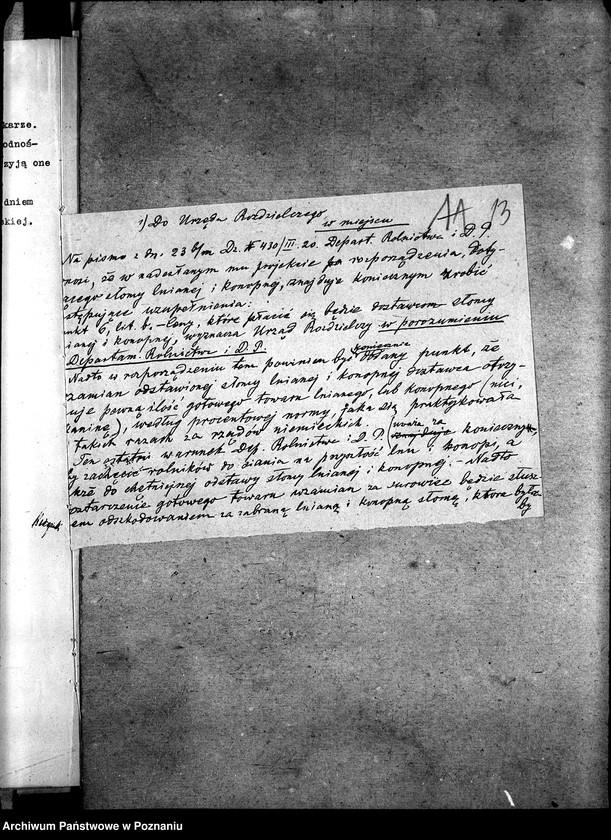 karze.
odnoś-
zyją one
dniem
kiej.
1) Do Urzędu Rozdzielczego
w miejscu
AA 13
Na pismo z dn. 23 b/m Dz. № 430/III. 20. Depart. Rolnictwa i D. P.
nosi, że w nadesłanym mu projekcie rozporządzenia, doty-
czącego słomy lnianej i konopnej, znajduje koniecznym zrobić
stępujące uzupełnienia:
nkt 6, lit. b. – Ceny, które płacić się będzie dostawcom słomy
ianej i konopnej, wyznacza Urząd Rozdzielczy w porozumieniu
Departam. Rolnictwa i D. P.
Nadto w rozporządzeniu tem powinien być koniecznie dodany punkt, że
zamian odstawionej słomy lnianej i konopnej dostawca otrzy-
uje pewną ilość gotowego towaru lnianego, lub konopnego (nici,
aninę), według procentowej normy, jaka się praktykowała
takich razach za rządów niemieckich.
Ten ostatni warunek Dep. Rolnictwa i D. P. uważa za koniecznym,
by zachęcić rolników do siania na przyszłość lnu i konopi, a
kże do chętniejszej odstawy słomy lnianej i konopnej. – Nadto
ostarczenie gotowego towaru wzamian za surowiec będzie słusz
em odszkodowaniem za zabraną lnianą i konopną słomę, która
by